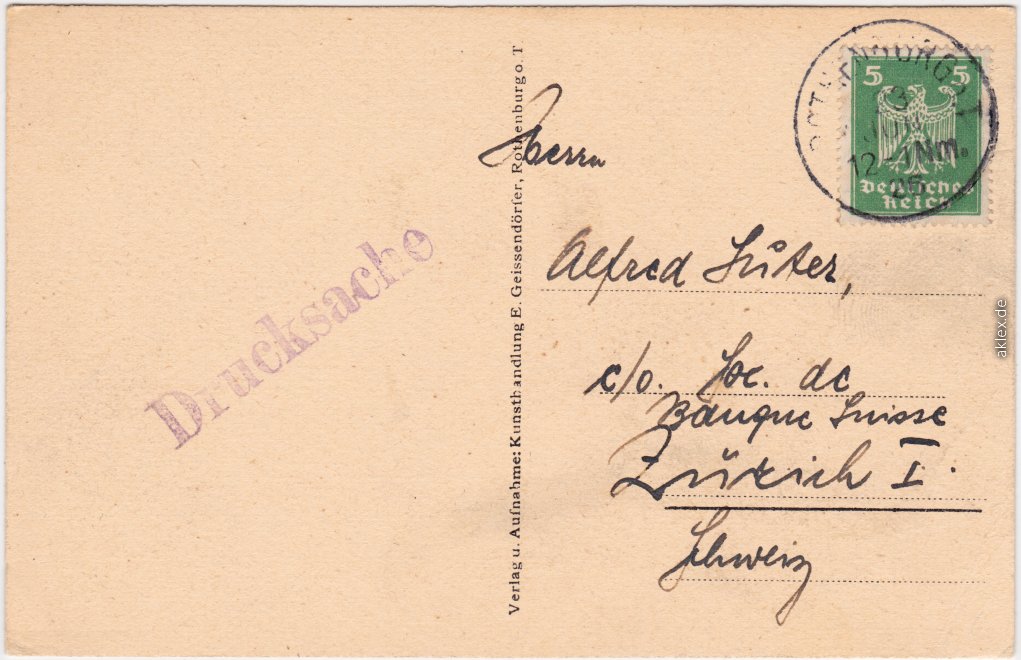 Drucksache
Verlag u. Aufnahme: Kunsthandlung E. Geissendörfer, Rothenburg o. T
ROTHENBURG o. T
3
JUN
12-1 Nm.
5 5
Deutsches
Reich
Herrn
Alfred Suter,
c/o. Soc. de
Banque Suisse
Zürich I.
Schweiz
aklex.de